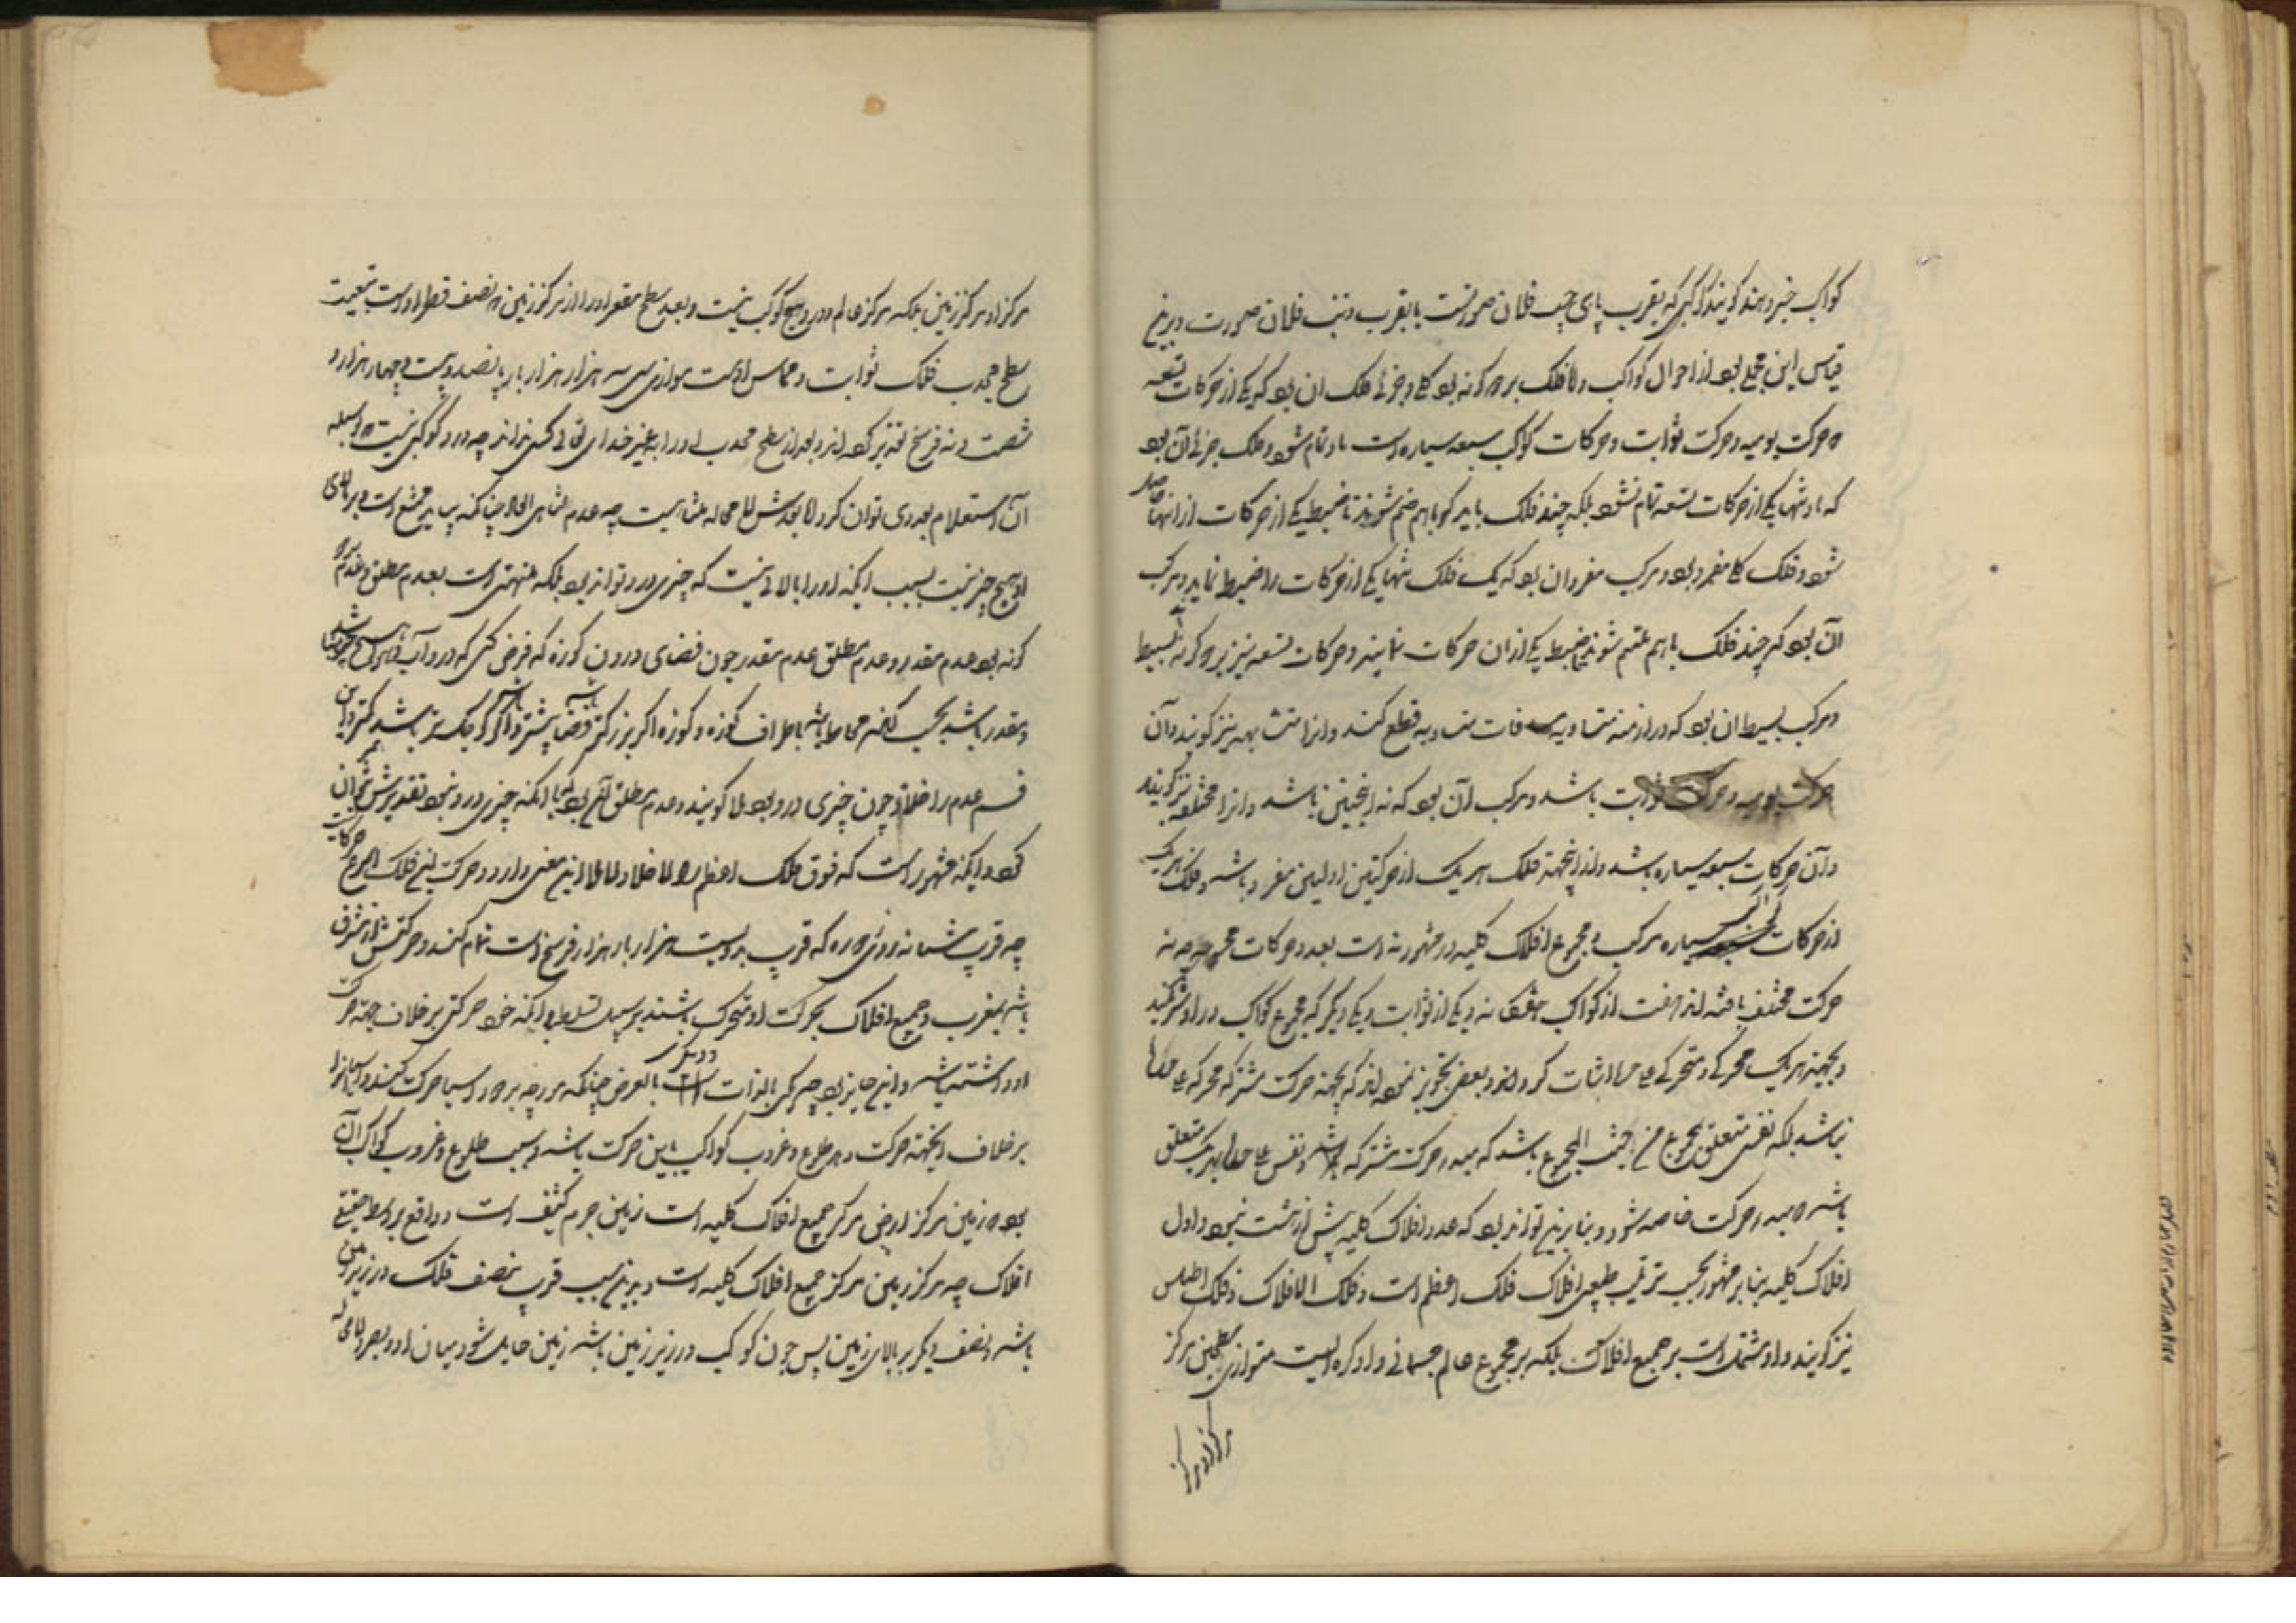 کواکب خبر دهند گویند کوکبی که بقرب پای چپ فلان صورتست یا بقرب ذنب فلان صورت و برین
قیاس این مجملی بود از احوال کواکب و اما فلک بر دو گونه بود کلی و جزئی فلک کلی ان بود که یکی از حرکات تسعه
که حرکت یومیه و حرکت ثوابت و حرکات کواکب سبعه سیاره است باو تمام شود و فلک جزئی آن بود
که باو تنها یکی از حرکات تسعه تمام نشود بلکه چند فلک باید که باهم ضم شوند تا ضبط یکی از حرکات ازانها حاصل
شود و فلک کلی مفرد بود و مرکب مفرد ان بود که یک فلک تنها یکی از حرکات را ضبط نماید و مرکب
آن بود که چند فلک باهم ملتئم شوند تا ضبط یکی ازان حرکات نمایند و حرکات تسعه نیز بر دو گونه است بسیط
و مرکب بسیط ان بود که در ازمنه متساویه مسافات متساویه قطع کند و انرا متشابهه نیز گویند و آن
حرکت یومیه و حرکت ثوابت باشد و مرکب آن بود که نه اینچنین باشد و انرا مختلفه نیز گویند
و آن حرکات سبعه سیاره باشد و ازینجهة فلک هر یک از حرکتین اولیین مفرد باشد و فلک هریک
از حرکات کواکب سیاره مرکب و مجموع افلاک کلیه در مشهور نه است بعدد حرکات چه نه
حرکت مختلف یافته اند هفت از کواکب هفتگانه و یکی از ثوابت و یکی دیگر که مجموع کواکب در او شریکند
و بجهة هریک محرکی و متحرکی علی حده اثبات کرده اند و بعضی تجویز نموده اند که بجهة حرکت مشترکه محرکه علی حده
نباشد بلکه نفسی متعلق بمجموع من حیث المجموع باشد که مبدء حرکت مشترکه باشد و نفس علی حده بهر یک متعلق
باشد که مبدء حرکت خاصه شود و بنابرین تواند بود که عدد افلاک کلیه بیش از هشت نبود و اول
افلاک کلیه بنابر مشهور بحسب ترتیب طبیعی افلاک فلک اعظم است و فلک الافلاک و فلک اطلس
نیز گویند و او مشتمل است بر جمیع افلاک بلکه بر مجموع عالم جسمانی و او کره ایست متوازی سطحین مرکز
مرکز او مرکز
مرکز او مرکز زمین بلکه مرکز عالم و درو هیچ کوکب نیست و بعد سطح مقعر او را از مرکز زمین که نصف قطر اوست بتبعیت
سطح محدب فلک ثوابت و مماس اوست موازی سی سه هزار هزار بار پانصد و بیست و چهار هزار و
شصت و نه فرسخ تقدیر کرده اند و بعد از سطح محدب او را بغیر خدای تعالی کسی نداند چه درو کوکبی نیست که بوسیله
آن استعلام بعد وی توان کرد و اما بعدش لا محاله متناهیست چه عدم تناهی ابعاد چنانکه بیاید ممتنع است و بر بالای
او هیچ چیز نیست بسبب اینکه او را بالائی نیست که چیزی درو تواند بود بلکه منتهی است بعدم مطلق و عدم بر دو
گونه بود عدم مقدر و عدم مطلق عدم مقدر چون فضای درون کوزه که فرض کنی که درو آب و هوا و هیچ چیز نباشد
و مقدر باشد بحسب آنکه محاط باشد باطراف کوزه و کوزه اگر بزرگتر باشد فضا بیشتر باشد و اگر کوچک تر باشد کمتر و این
قسم عدم را خلا و چون چیزی درو بود ملا گویند و عدم مطلق آنچ بود که با انکه چیزی درو نبود تقدیرش هم نتوان
کرد و اینکه مشهور است که فوق فلک اعظم لا خلا و لا ملا این معنی دارد و حرکت این فلک اسرع حرکات
چه قرب شبانه روزی دوره که قرب بدویست هزار بار هزار فرسخ است تمام کند و حرکتش از مشرق
باشد بمغرب و جمیع افلاک بحرکت او متحرک باشند بر سبیل تسلط با آنکه خود حرکتی بر خلاف جهة حرکت
او داشته باشند و این جایز بود چه یکی بالذات و دیگری بالعرض چنانکه مورچه بر دور آسیا حرکت کند و آسیا انرا
بر خلاف آنجهة حرکت دهد و طلوع و غروب کواکب باین حرکت باشد و سبب طلوع و غروب کواکب آن
بود که زمین مرکز ارضی مرکز جمیع افلاک کلیه است زمین جرم کثیف است و واقع بر وسط حقیقی
افلاک چه مرکز زمین مرکز جمیع افلاک کلیه است و بدین سبب قرب بنصف فلک در زیر زمین
باشد و نصف دیگر بر بالای زمین پس چون کوکب در زیر زمین باشد زمین حایل شود میان او و بصر و لا محاله